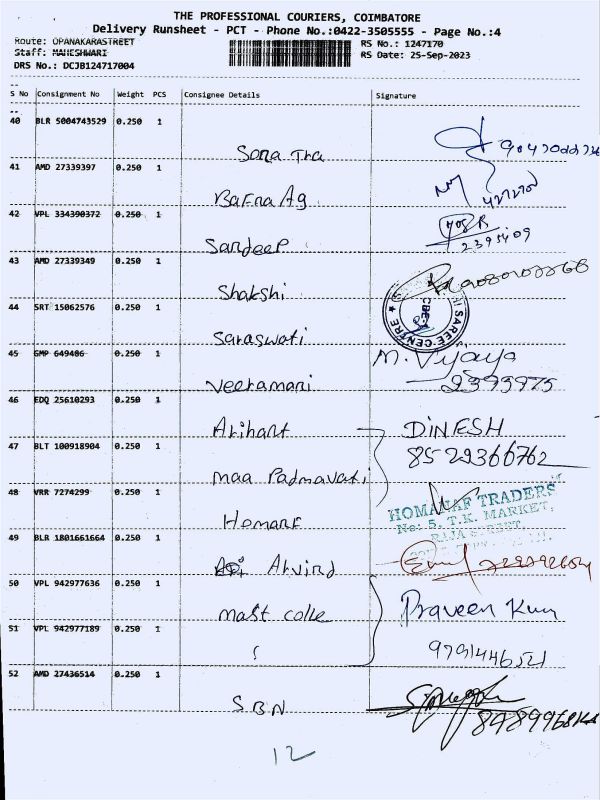 THE PROFESSIONAL COURIERS, COIMBATORE
Delivery Runsheet - PCT - Phone No.:0422-3505555 - Page No.:4
Route: OPANAKARASTREET RS No.: 1247170
Staff: MAHESHWARI RS Date: 25-Sep-2023
DRS No.: DCJB124717004
S No Consignment No Weight PCS Consignee Details Signature
40 BLR 5004743529 0.250 1
Sona Tra
41 AMD 27339397 0.250 1
Bafna Ag
42 VPL 334390372 0.250 1
Sandeep 2395409
43 AMD 27339349 0.250 1
Shakshi
44 SRT 15062576 0.250 1
SAREE CENTRE
CBE-1
Saraswati
45 GMP 649486 0.250 1
M. Vijaya
Veeramani 2399975
46 EDQ 25610293 0.250 1
Arihant DINESH
47 BLT 100918904 0.250 1
8529366762
maa Padmavati
48 VRR 7274299 0.250 1
HOMANAF TRADERS
No: 5, T.K. MARKET,
Homanf RAJA STREET,
49 BLR 1801661664 0.250 1
Arvind
50 VPL 942977636 0.250 1
mast colle Praveen Kum
51 VPL 942977189 0.250 1
9791446521
52 AMD 27436514 0.250 1
SBN
12